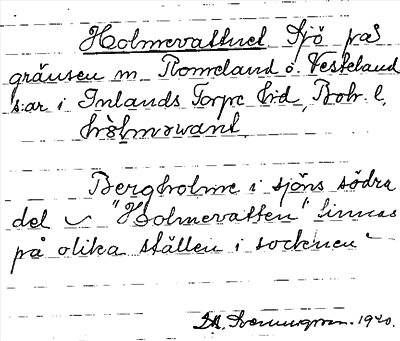 Holmevattnet Sjö på
gränsen m Romeland o. Vesteland
s:ar i Inlands Torpe hd, Boh. l.
Bergholme i sjöns södra
del – "Holmevatten" finnas
på olika ställen i socknen
1920.